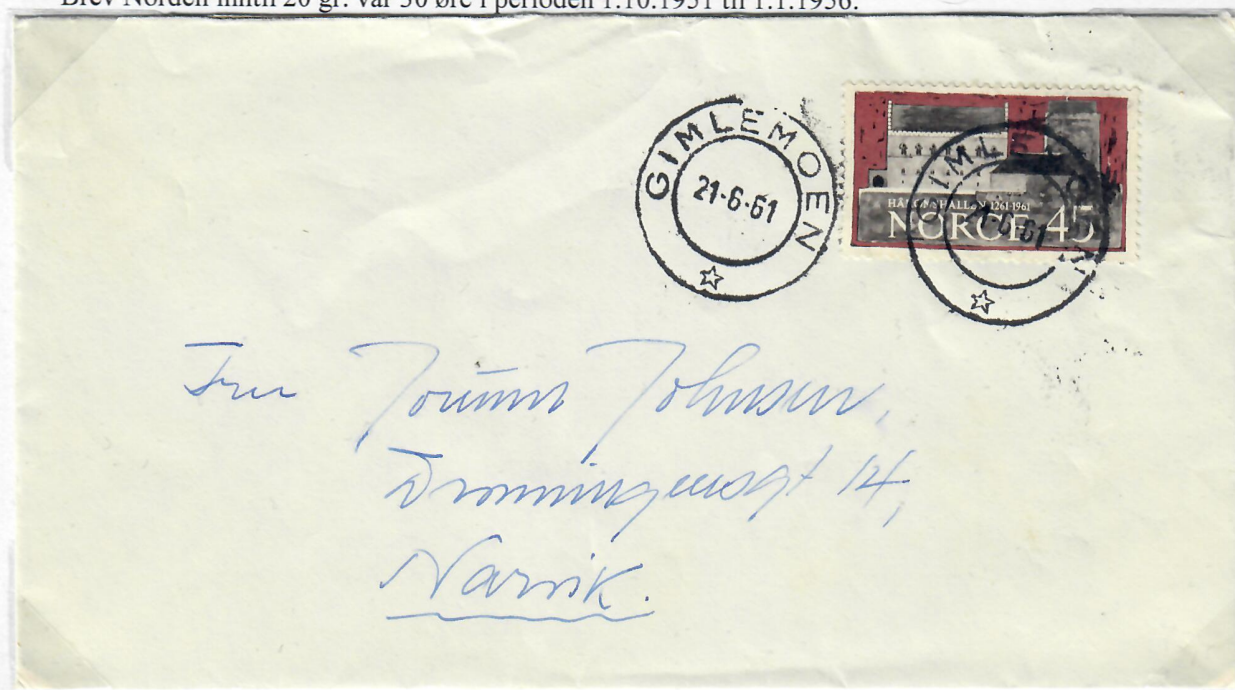 Brev Norden inntil 20 gr. var 30 øre i perioden 1.10.1951 til 1.1.1956.
GIMLEMOEN
21-6-61
HÅKONSHALLEN 1261-1961
NORGE 45
GIMLEMOEN
21-6-61
Fru Jorunn Johnsen,
Dronningensgt 14,
Narvik.